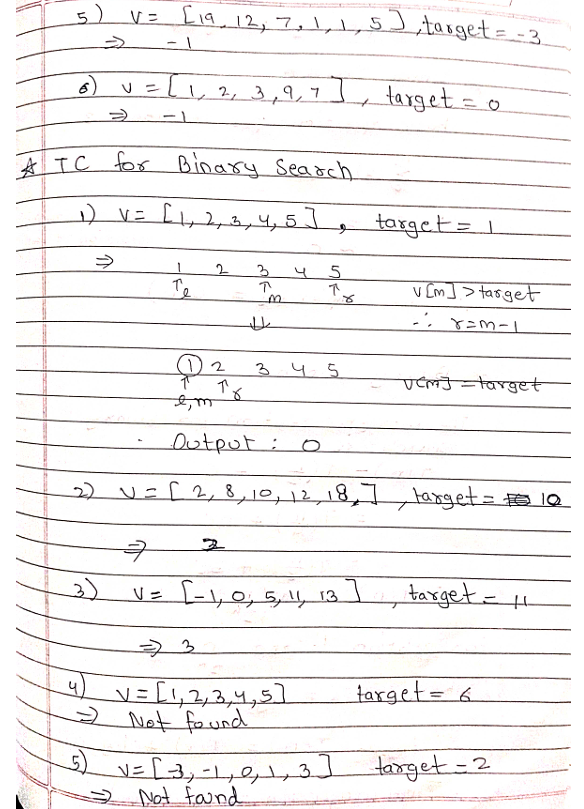 5) V = [19, 12, 7, 1, 1, 5], target = -3
⇒ -1
6) V = [1, 2, 3, 9, 7], target = 0
⇒ -1
☆ TC for Binary Search
1) V = [1, 2, 3, 4, 5], target = 1
⇒ 1 2 3 4 5
↑l ↑m ↑r V[m] > target
⇓ ∴ r=m-1
① 2 3 4 5 V[m] = target
↑ ↑r
l,m
Output : 0
2) V = [2, 8, 10, 12, 18,], target = 10
⇒ 2
3) V = [-1, 0, 5, 11, 13], target = 11
⇒ 3
4) V = [1, 2, 3, 4, 5] target = 6
⇒ Not found
5) V = [-3, -1, 0, 1, 3] target = 2
⇒ Not found